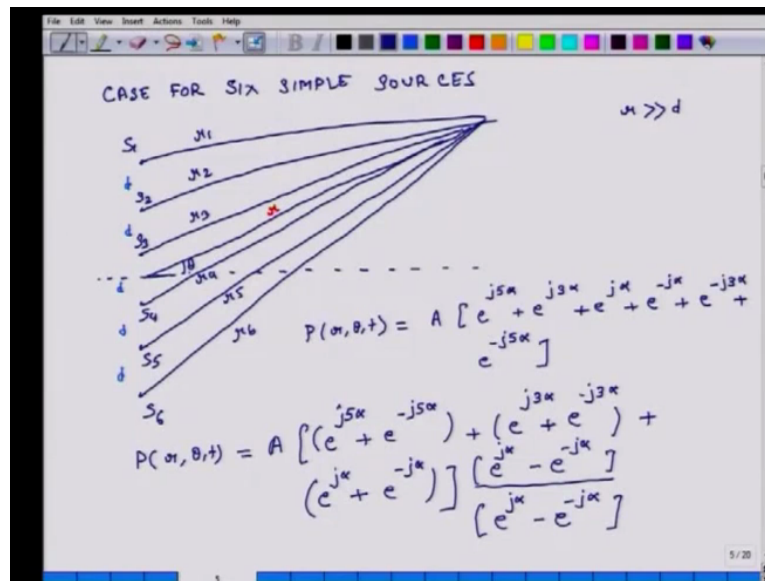 File Edit View Insert Actions Tools Help
B I
CASE FOR SIX SIMPLE SOURCES
r >> d
S1 r1
d
S2 r2
d
S3 r3 r
θ
d r4
S4
d r5
S5
d r6
S6
P(r,θ,t) = A [e^{j5α} + e^{j3α} + e^{jα} + e^{-jα} + e^{-j3α} +
e^{-j5α}]
P(r,θ,t) = A [(e^{j5α} + e^{-j5α}) + (e^{j3α} + e^{-j3α}) +
(e^{jα} + e^{-jα})] [e^{jα} - e^{-jα}]
[e^{jα} - e^{-jα}]
5/20
5